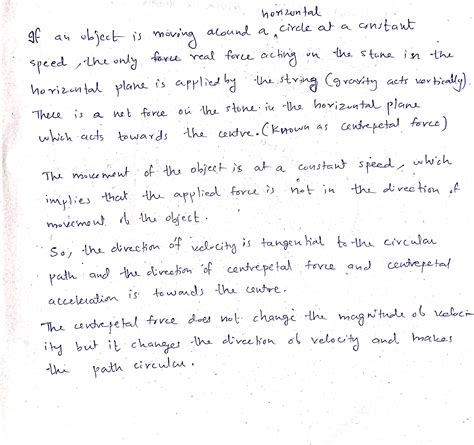 horizontal
If an object is moving around a circle at a constant
speed, the only force real force acting on the stone in the
horizontal plane is applied by the string (gravity acts vertically).
There is a net force on the stone in the horizontal plane
which acts towards the centre. (Known as centrepetal force)
The movement of the object is at a constant speed, which
implies that the applied force is not in the direction of
movement of the object.
So, the direction of velocity is tangential to the circular
path and the direction of centrepetal force and centrepetal
acceleration is towards the centre.
The centrepetal force does not change the magnitude of veloc
ity but it changes the direction of velocity and makes
the path circular.